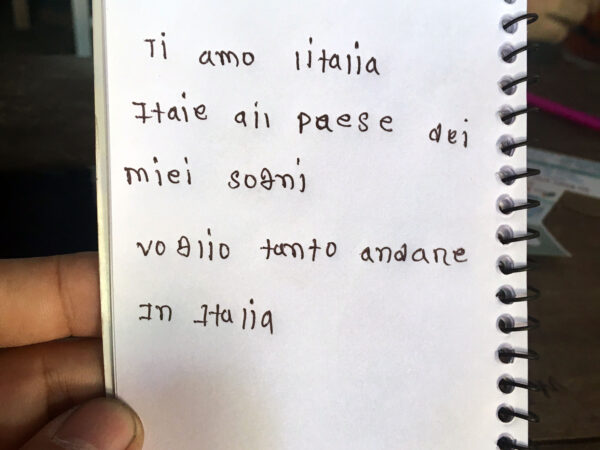 Ti amo litalia
Itaie ail paese dei
miei sogni
voglio tanto andare
In Italia